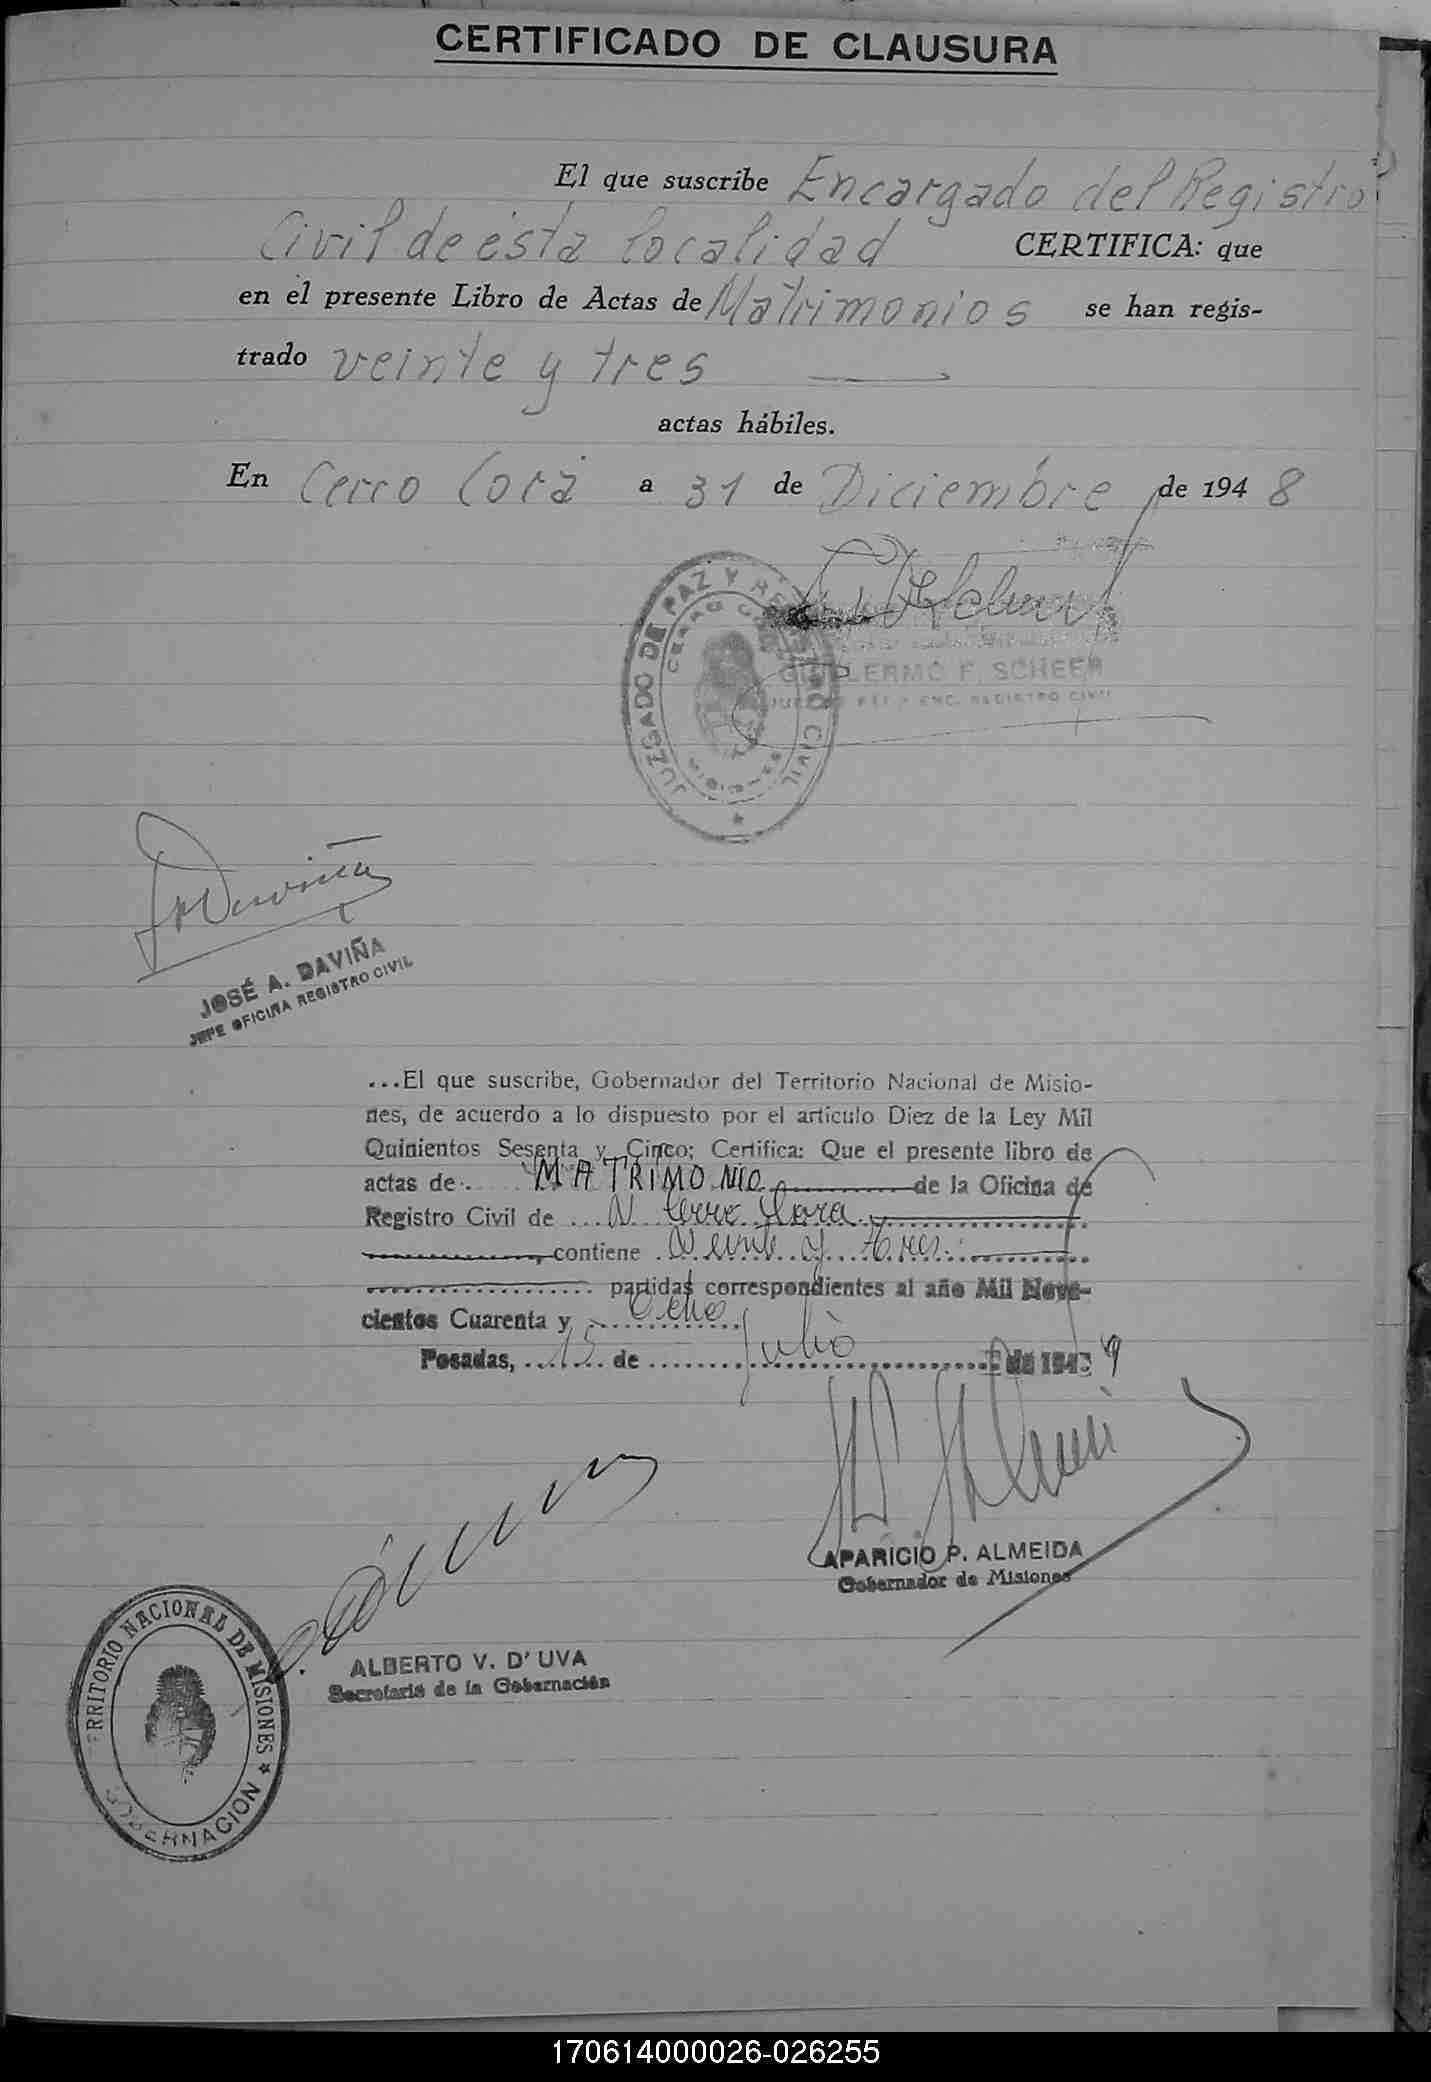 CERTIFICADO DE CLAUSURA
El que suscribe Encargado del Registro
Civil de ésta localidad CERTIFICA: que
en el presente Libro de Actas de Matrimonios se han regis-
trado veinte y tres
actas hábiles.
En Cerro Corá a 31 de Diciembre de 1948
JUZGADO DE PAZ Y REGISTRO CIVIL
CERRO
GUILLERMO F. SCHEER
JUEZ DE PAZ Y ENC. REGISTRO CIVIL
JOSÉ A. DAVIÑA
JEFE OFICINA REGISTRO CIVIL
...El que suscribe, Gobernador del Territorio Nacional de Misio-
nes, de acuerdo a lo dispuesto por el artículo Diez de la Ley Mil
Quinientos Sesenta y Cinco; Certifica: Que el presente libro de
actas de MATRIMONIO de la Oficina de
Registro Civil de Cerro Cora
contiene Veinte y tres
partidas correspondientes al año Mil Nove-
cientos Cuarenta y Ocho
Posadas, 15 de Julio de 1949
APARICIO P. ALMEIDA
Gobernador de Misiones
ALBERTO V. D'UVA
Secretario de la Gobernación
TERRITORIO NACIONAL DE MISIONES
GOBERNACION
170614000026-026255